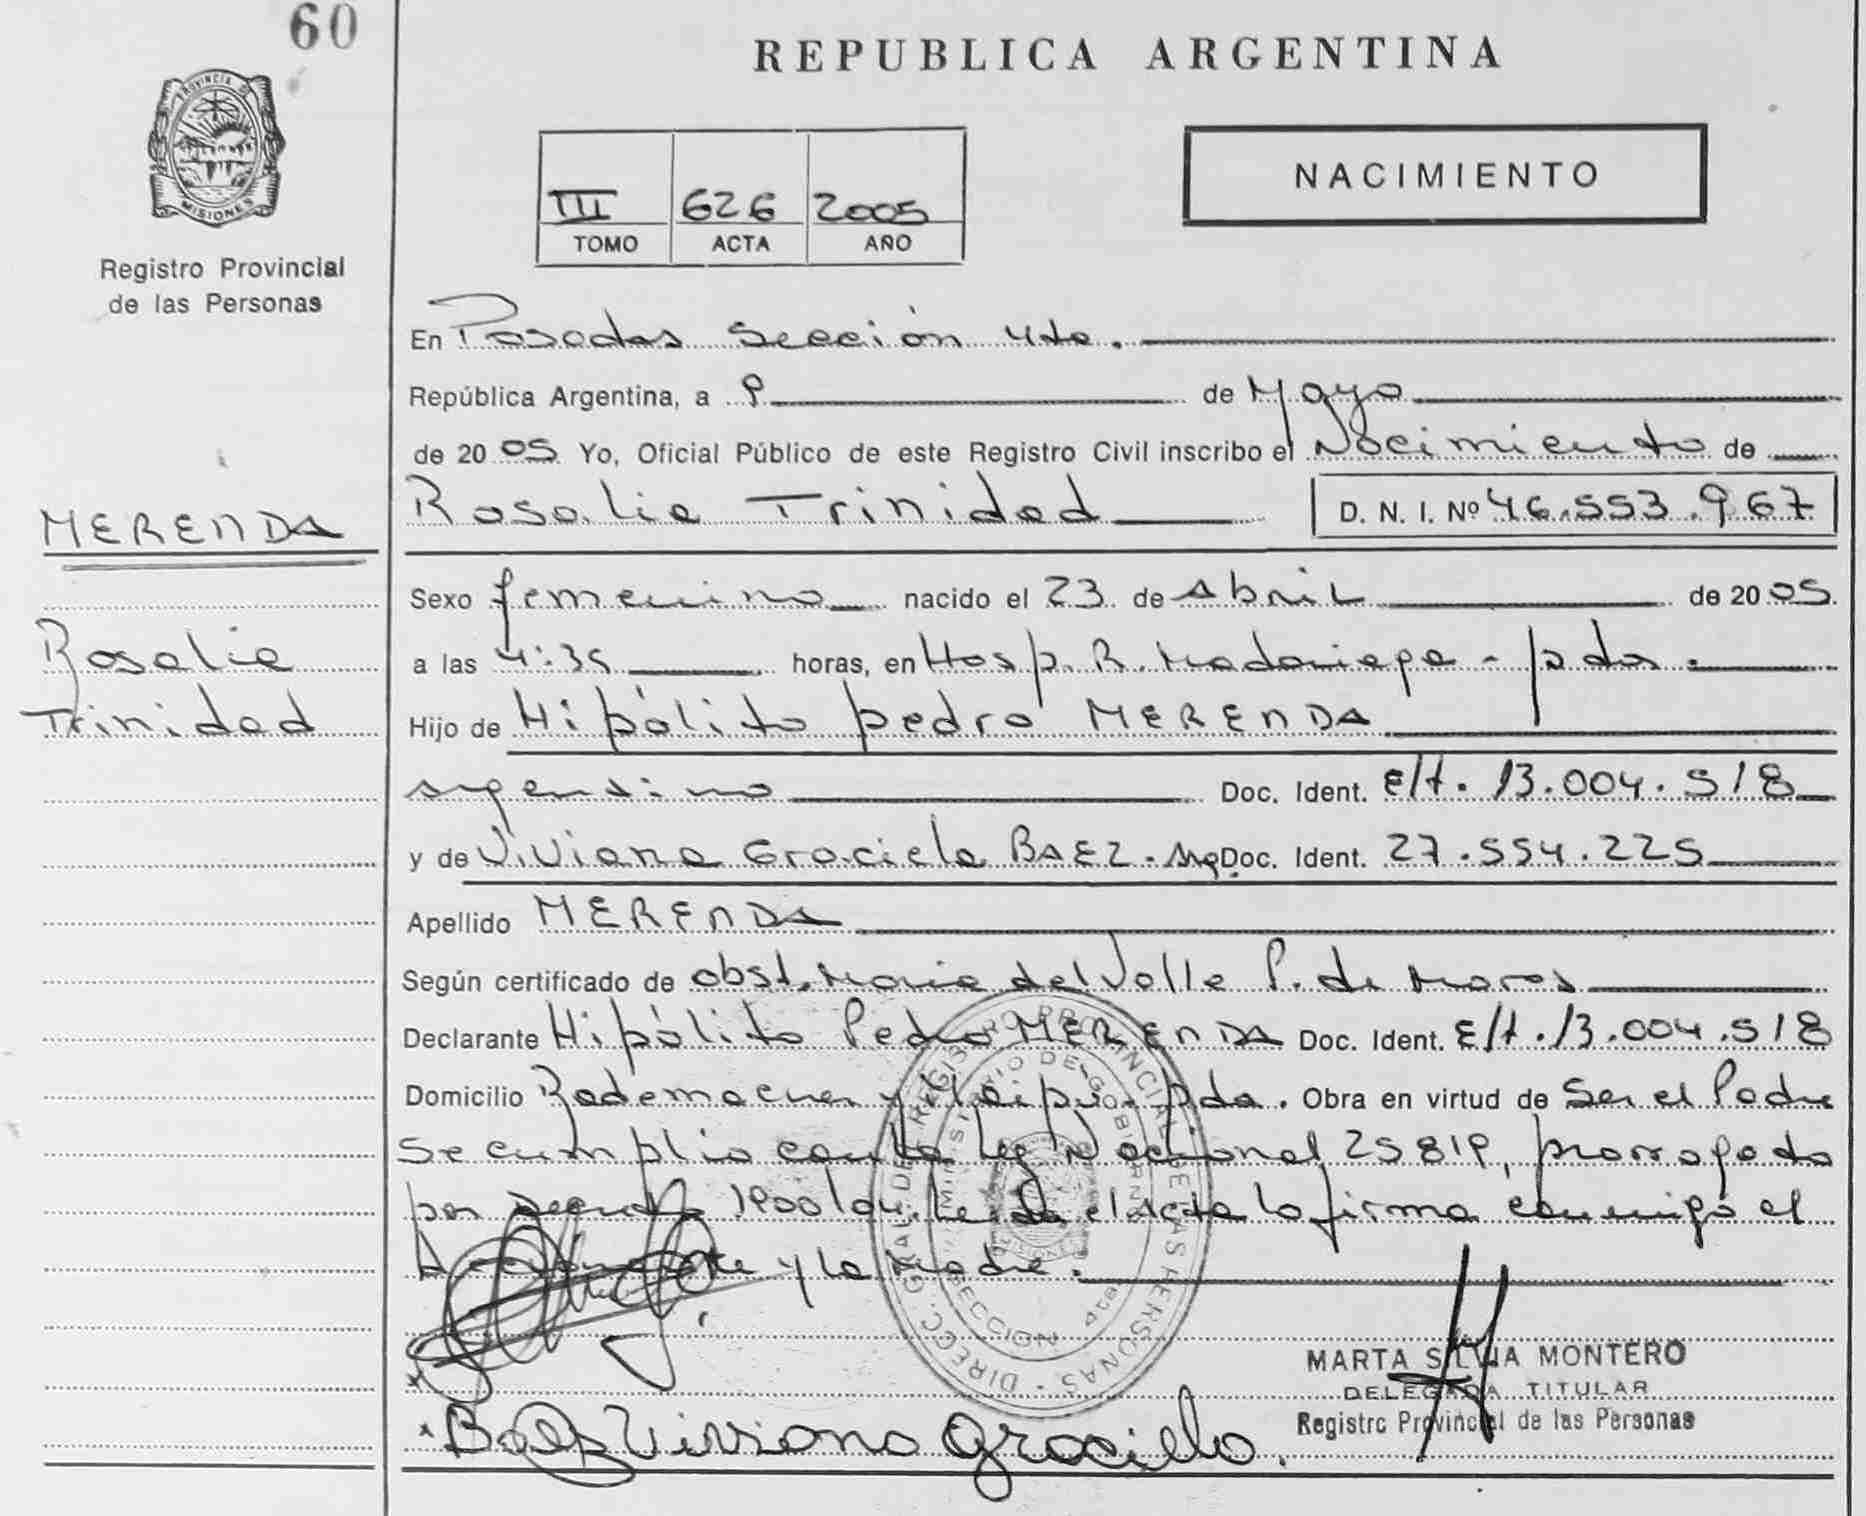 60
REPUBLICA ARGENTINA
PROVINCIA DE
MISIONES
NACIMIENTO
III 626 2005
TOMO ACTA AÑO
Registro Provincial
de las Personas
En Posadas Sección 4ta.
República Argentina, a 9 de Mayo
de 2005 Yo, Oficial Público de este Registro Civil inscribo el Nacimiento de
MERENDA
Rosalie Trinidad D. N. I. Nº 46.553.967
Sexo femenino nacido el 23 de Abril de 2005
Rosalie
a las 4:35 horas, en Hosp. R. Madariaga - pdas.
Trinidad
Hijo de Hipólito pedro MERENDA
argentino Doc. Ident. e/t. 13.004.518
y de Viviana Graciela BAEZ. Arg Doc. Ident. 27.554.225
Apellido MERENDA
Según certificado de obst. Maria del Valle P. de Moros
Declarante Hipólito Pedro MERENDA Doc. Ident. E/t. 13.004.518
Domicilio Rademacher y Maipu. pda. Obra en virtud de Ser el Padre
se cumplio con la ley Nacional 25819, prorrogada
por Decreto 1900/04. Leida el Acta la firma conmigo el
y la Madre.
DIRECC. GRAL DE REGISTRO PROVINCIAL DE LAS PERSONAS
MINISTERIO DE GOBIERNO
SECCION 4ta
MARTA SILVIA MONTERO
DELEGADA TITULAR
Registro Provincial de las Personas
Baez Viviana Graciela.